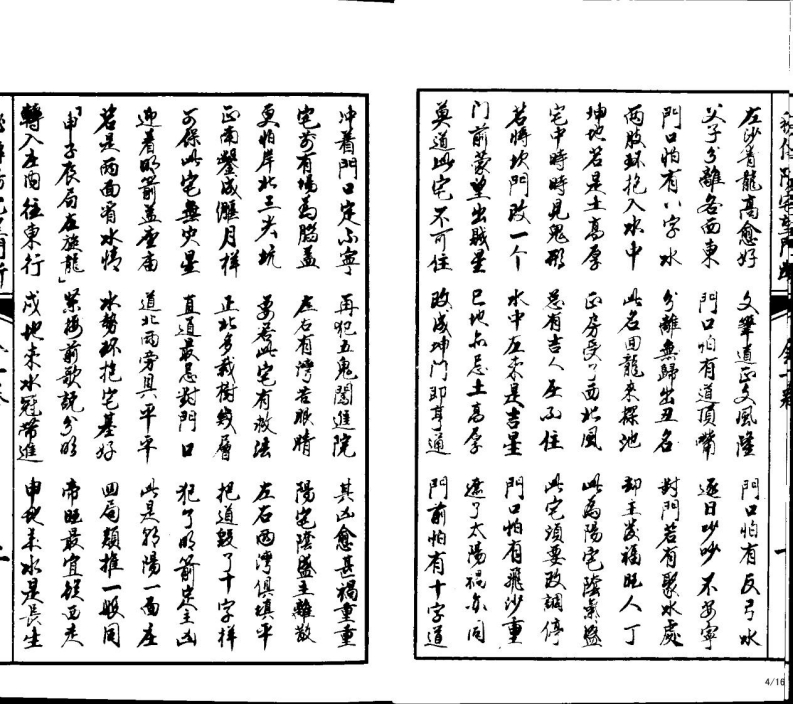 左沙青龍高愈好 文筆道正文風隆 門口怕有反弓水
父子分離各西東 門口怕有道頂嘴 逐日吵吵不安寧
門口怕有八字水 分離無歸出丑名 對門若有聚水處
兩肢环抱入水中 此名回龍來探池 却主發福旺人丁
坤地若是土高厚 正房受了西北風 此為陽宅陰氣盛
宅中時時見鬼形 总有吉人在不住 此宅須要改調停
若將坎門改一个 水中在來是吉星 門口怕有飛沙重
門前蒙望出賊星 巳地亦忌土高厚 遮了太陽禍亦同
莫道此宅不可住 改成坤門即亨通 門前怕有十字道
冲着門口定不寧 再犯五鬼闖進院 其凶愈甚禍重重
宅前有場為腦蓋 左右有灣若眼睛 陽宅陰盛主離散
更怕岸北三尖坑 要若此宅有救法 左右兩灣俱填平
正南鑿成偃月樣 正北多栽樹幾層 把道毀了十字樣
可保此宅無灾星 直道最忌對門口 犯了明箭定主凶
迎着明箭蓋座廟 道北兩旁具平平 此是
若是兩面省水情 水勢环抱宅基好 四局類推一般同
「申子辰局在旋龍」 緊接前歌說分明 帝旺最宜從西走
轉入左西往東行 戌地来水冠帶進 申地来水是長生
4/16